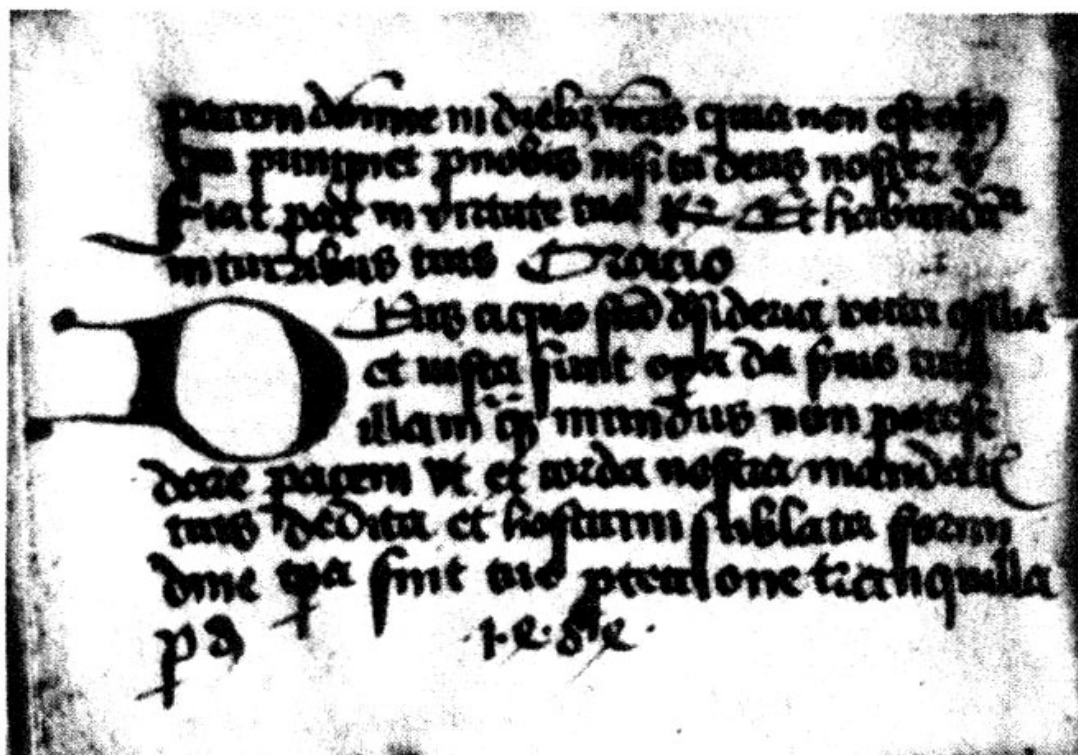 pacem domine in dieb; nr̄is quia non est alius
qui pungnet ꝓ nobis nisi tu deus noster v̄
Fiat pax̄ in virtute tua R̄ Et habundāᵃ
in turribus tuis Oracio
Deus a quo sc̄a desideria recta ꝯsilia
et iusta sunt oꝑa da s̄uis tuis
illam q̄ mundus non potest
dare pacem vt et corda nostra mandatis
tuis dedita et hostium sublata formi
dine tꝑa sint tua ꝓteccione tranquilla
ꝑ d